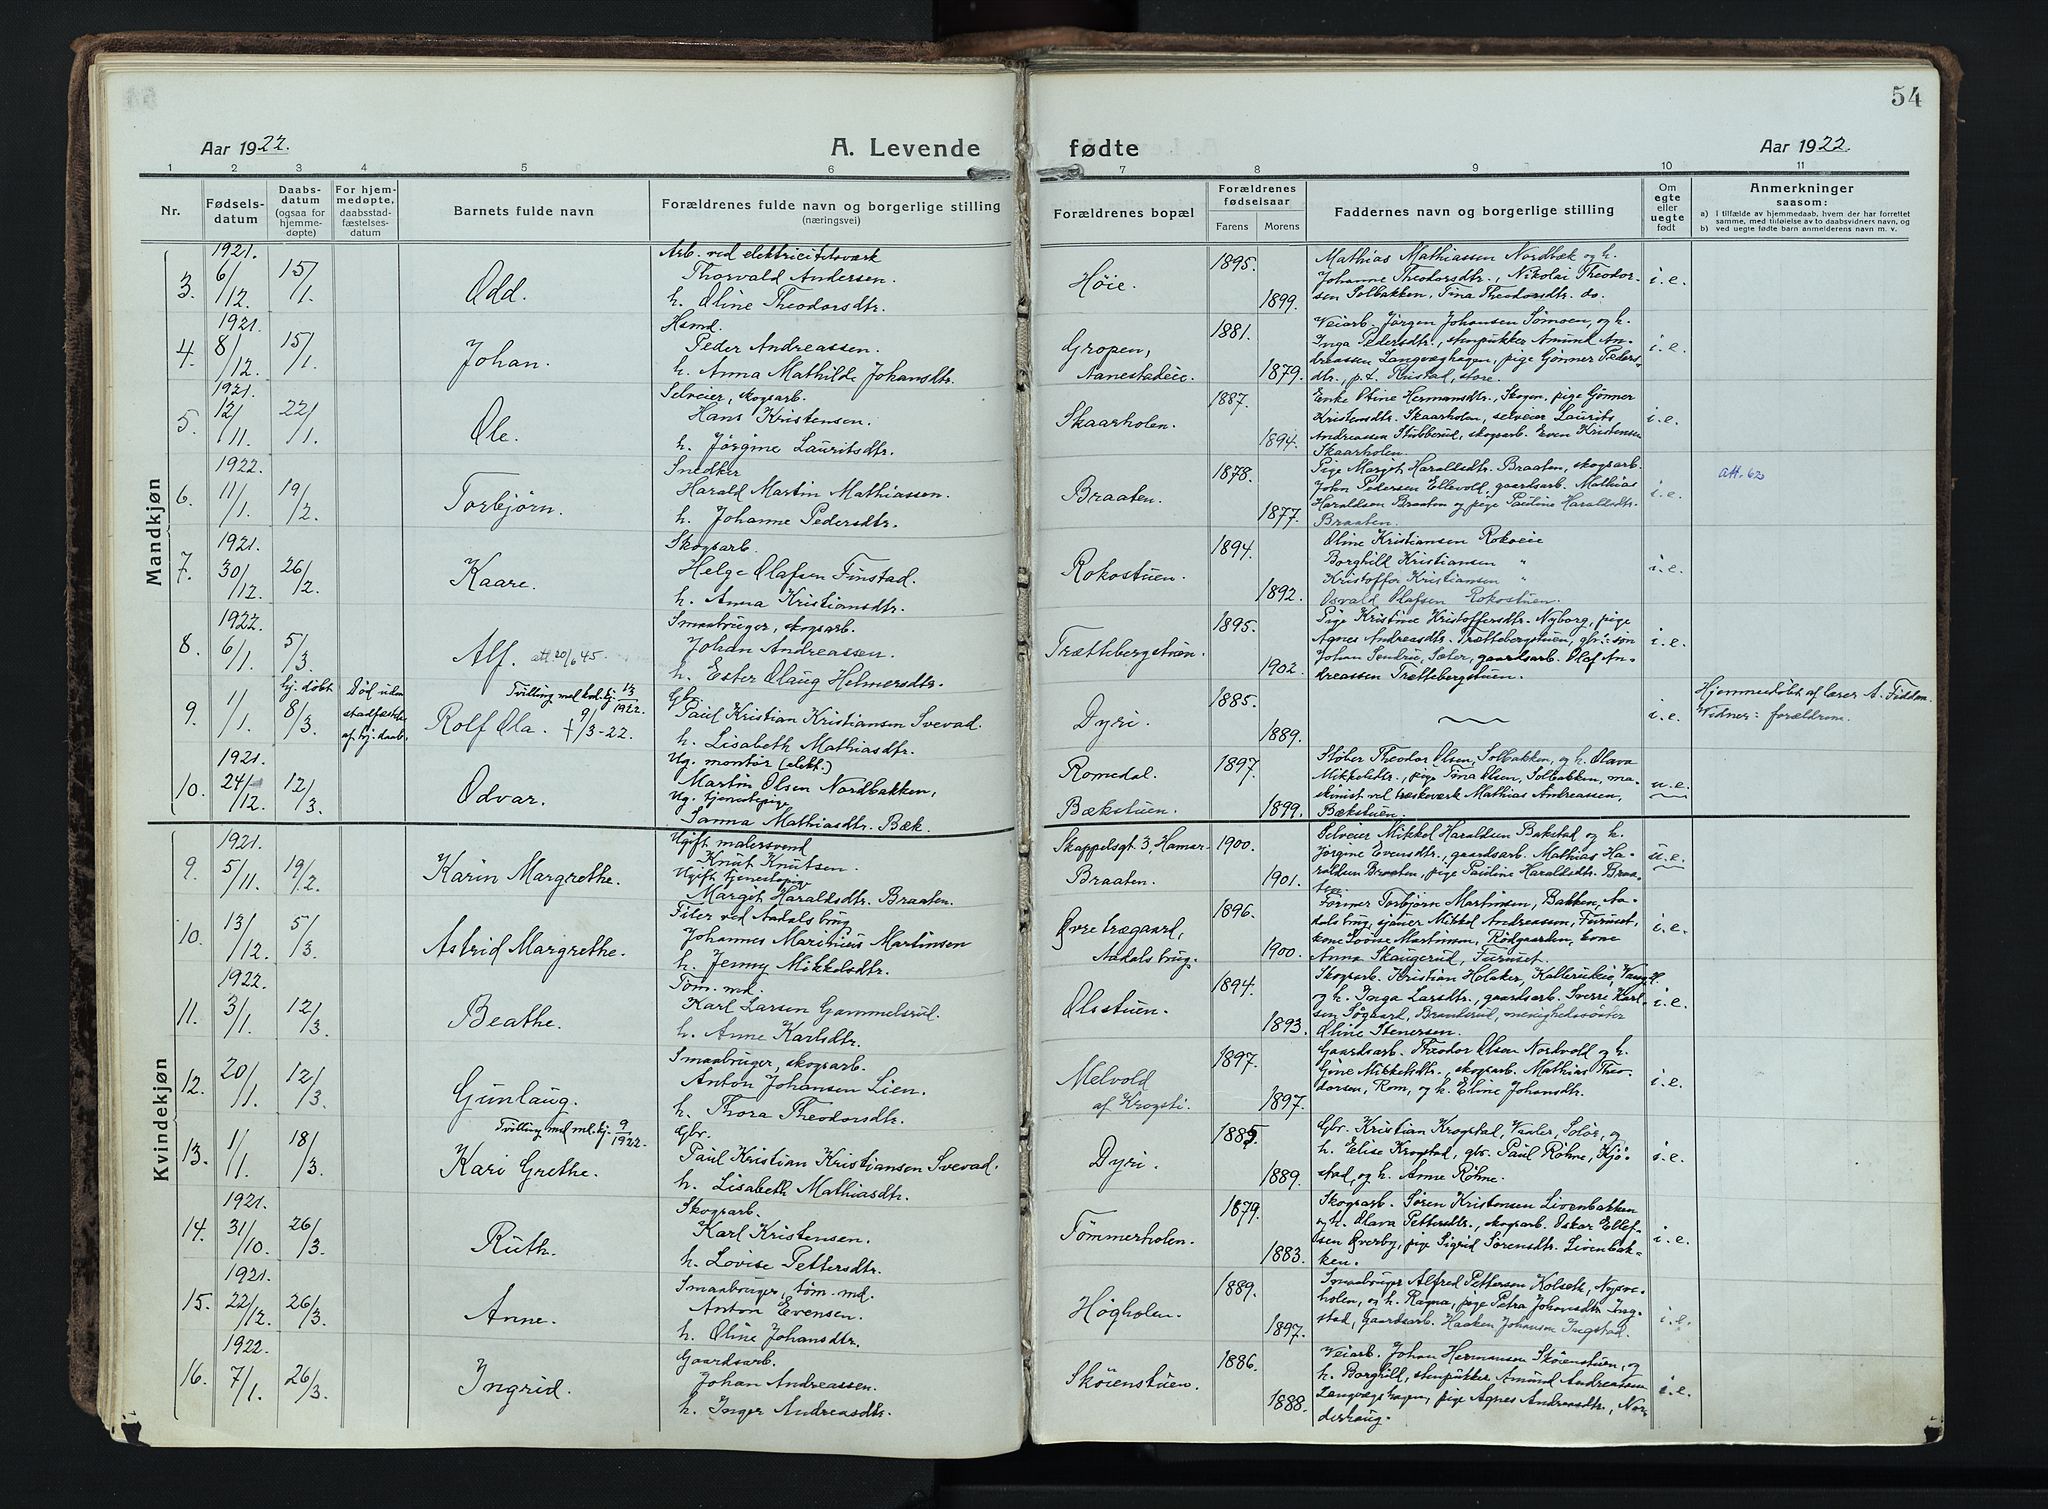 54
Aar 1922.
A. Levende fødte
Aar 1922.
1 2 3 4 5 6 7 8 9 10 11
Nr.
Fødsels-
datum
Daabs-
datum
(ogsaa for
hjemme-
døpte)
For hjem-
medøpte,
daabsstad-
fæstelses-
datum
Barnets fulde navn
Forældrenes fulde navn og borgerlige stilling
(næringsvei)
Forældrenes bopæl
Forældrenes
fødselsaar
Farens Morens
Faddernes navn og borgerlige stilling
Om
egte
eller
uegte
født
Anmerkninger
saasom:
a) I tilfælde av hjemmedaab, hvem der har forrettet
samme, med tilføielse av to daabsvidners navn, og
b) ved uegte fødte barn anmelderens navn m. v.
Mandkjøn
3.
1921.
6/12.
15/1.
Odd.
Arb. ved elektricitetsverk
Thorvald Andersen.
h. Oline Theodorsdtr.
Høie.
1895.
1899.
Mathias Mathiassen Nordbæk og h.
Johanne Theodorsdtr., Nikolai Theodor-
sen Solbakken, Tina Theodorsdtr. do.
i.e.
4.
1921.
8/12.
15/1.
Johan.
Hsmd.
Peder Andreassen.
h. Anna Mathilde Johansdtr.
Gropen,
Aanestadeie.
1881.
1879.
Veiarb. Jørgen Johansen Sømoen, og h.
Inga Pedersdtr., stenpukker Amund An-
dreassen Langvæghagen, pige Gønner Peders-
dtr., p.t. Rustad, store.
i.e.
5.
1921.
12/11.
22/1.
Ole.
Selveier, skogsarb.
Hans Kristensen.
h. Jørgine Lauritsdtr.
Skaarholen.
1887.
1894.
Enke Oline Hermansdtr., Skogen, pige Gønner
Kristensdtr. Skaarholen, selveier Laurits
Andreassen Stubberud, skogsarb. Even Kristensen
Skaarholen.
i.e.
6.
1922.
11/1.
19/2.
Torbjørn.
Snedker
Harald Martin Mathiassen.
h. Johanne Pedersdtr.
Braaten.
1878.
1877.
Pige Margit Haraldsdtr. Braaten, skogsarb.
John Pedersen Ellevold, gaardsarb. Mathias
Haraldsen Braaten og pige Pauline Haraldsdtr.
Braaten.
i.e.
att. 62
7.
1921.
30/12.
26/2.
Kaare.
Skogsarb.
Helge Olafsen Finstad.
h. Anna Kristiansdtr.
Rokostuen.
1894.
1892.
Oline Kristiansen Rokoeie
Borghild Kristiansen "
Kristoffer Kristiansen "
Osvald Olafsen Rokostuen.
i.e.
8.
1922.
6/1.
5/3.
Alf. att. 20/6 45.
Smaabruger, skogsarb.
Johan Andreassen.
h. Ester Olaug Helmersdtr.
Trættebergstuen.
1895.
1902.
Pige Kristine Kristoffersdtr. Nyborg, pige
Agnes Andreasdtr. Trættebergstuen, gbr.søn
Johan Søndrue, Sæter, gaardsarb. Olaf An-
dreassen Trættebergstuen.
i.e.
9.
1/1.
hj. døbt
8/3.
Død uden
stadfæstelse
af hj. daab.
Tvilling med kvk. kj. 13/1922.
Rolf Ola. † 9/3-22.
Gbr.
Paul Kristian Kristiansen Svevad.
h. Lisabeth Mathiasdtr.
Dyri.
1885.
1889.
i.e.
Hjemmedøbt af lærer A. Fidden
Vidner: forældrene.
10.
1921.
24/12.
12/3.
Odvar.
Ug. montør (elekt.)
Martin Olsen Nordbakken,
Ug. tjenestepige
Sanna Mathiasdtr. Bæk.
Romedal.
Bækstuen.
1897.
1899.
Støber Theodor Olsen, Solbakken, og h. Olava
Mikkelsdtr., pige Tina Olsen, Solbakken, ma-
skinist ved træskoverk Mathias Andreassen,
Bækstuen.
u.e.
Kvindekjøn
9.
1921.
5/11.
19/2.
Karin Margrethe.
Ugift malersvend
Knut Knutsen.
Ugift tjenestepige
Margit Haraldsdtr. Braaten.
Skappelsgt. 3, Hamar
Braaten.
1900.
1901.
Selveier Mikkel Haraldsen Bakstad og h.
Jørgine Evensdtr., gaardsarb. Mathias Ha-
raldsen Braaten, pige Pauline Haraldsdtr. Braa-
ten.
u.e.
10.
13/12.
5/3.
Astrid Margrethe.
Filer ved Aadals brug
Johannes Marinius Martinsen
h. Jenny Mikkelsdtr.
Øvre trægaard,
Aadals brug.
1896.
1900.
Former Torbjørn Martinsen, Bakken, Aa-
dalsbrug, sjauer Mikkel Andreassen, Furuset,
kone Lovise Martinsen, Rødgaarden, kone
Anna Skaugerud, Furuset.
i.e.
11.
1922.
3/1.
12/3.
Beathe.
Tøm. md.
Karl Larsen Gammelsrud.
h. Anne Karlsdtr.
Olsstuen.
1894.
1893.
Skogsarb. Kristian Holaker, Kallerudeie, Vang H.
og h. Inga Larsdtr., gaardsarb. Sverre Karl-
sen Søgaard, Branterud, menighedssøster
Oline Stenersen.
i.e.
12.
20/1.
12/3.
Gunlaug.
Smaabruger, skogsarb.
Anton Johansen Lien.
h. Thora Theodorsdtr.
Melvold
af Krogsti.
1897.
1897.
Gaardsarb. Theodor Olsen Nordvold og h.
Gine Mikkelsdtr., skogsarb. Mathias Theo-
dorsen, Rom, og h. Eline Johansdtr.
i.e.
13.
1/1.
18/3.
Tvilling med ml. kj. 9/1922.
Kari Grethe.
Gbr.
Paul Kristian Kristiansen Svevad.
h. Lisabeth Mathiasdtr.
Dyri.
1885.
1889.
Gbr. Kristian Krogstad, Vaaler, Solør, og
h. Elise Krogstad, gbr. Paul Røhne, Kjø-
stad, og h. Anne Røhne.
i.e.
14.
1921.
31/10.
26/3.
Ruth.
Skogsarb.
Karl Kristensen.
h. Lovise Pettersdtr.
Tømmerholen.
1879.
1883.
Skogsarb. Søren Kristensen Livenbakken
og h. Olava Pettersdtr., skogsarb. Oskar Ellef-
sen Øverby, pige Sigrid Sørensdtr. Livenbak-
ken.
i.e.
15.
1921.
22/12.
26/3.
Anne.
Smaabruger, tøm. md.
Anton Evensen.
h. Oline Johansdtr.
Høgholen.
1889.
1897.
Smaabruger Alfred Pettersen Kolseth, Nysve-
holen, og h. Ragna, pige Petra Johansdtr. Ing-
stad, gaardsarb. Haaken Johansen Ingstad.
i.e.
16.
1922.
7/1.
26/3.
Ingrid.
Gaardsarb.
Johan Andreassen.
h. Inger Andreasdtr.
Skøienstuen.
1886.
1888.
Veiarb. Johan Hermansen Skøienstuen, og
h. Borghild, stenpukker Amund Andreassen
Langvægshagen, pige Agnes Andreasdtr., Nor-
derhaug.
i.e.